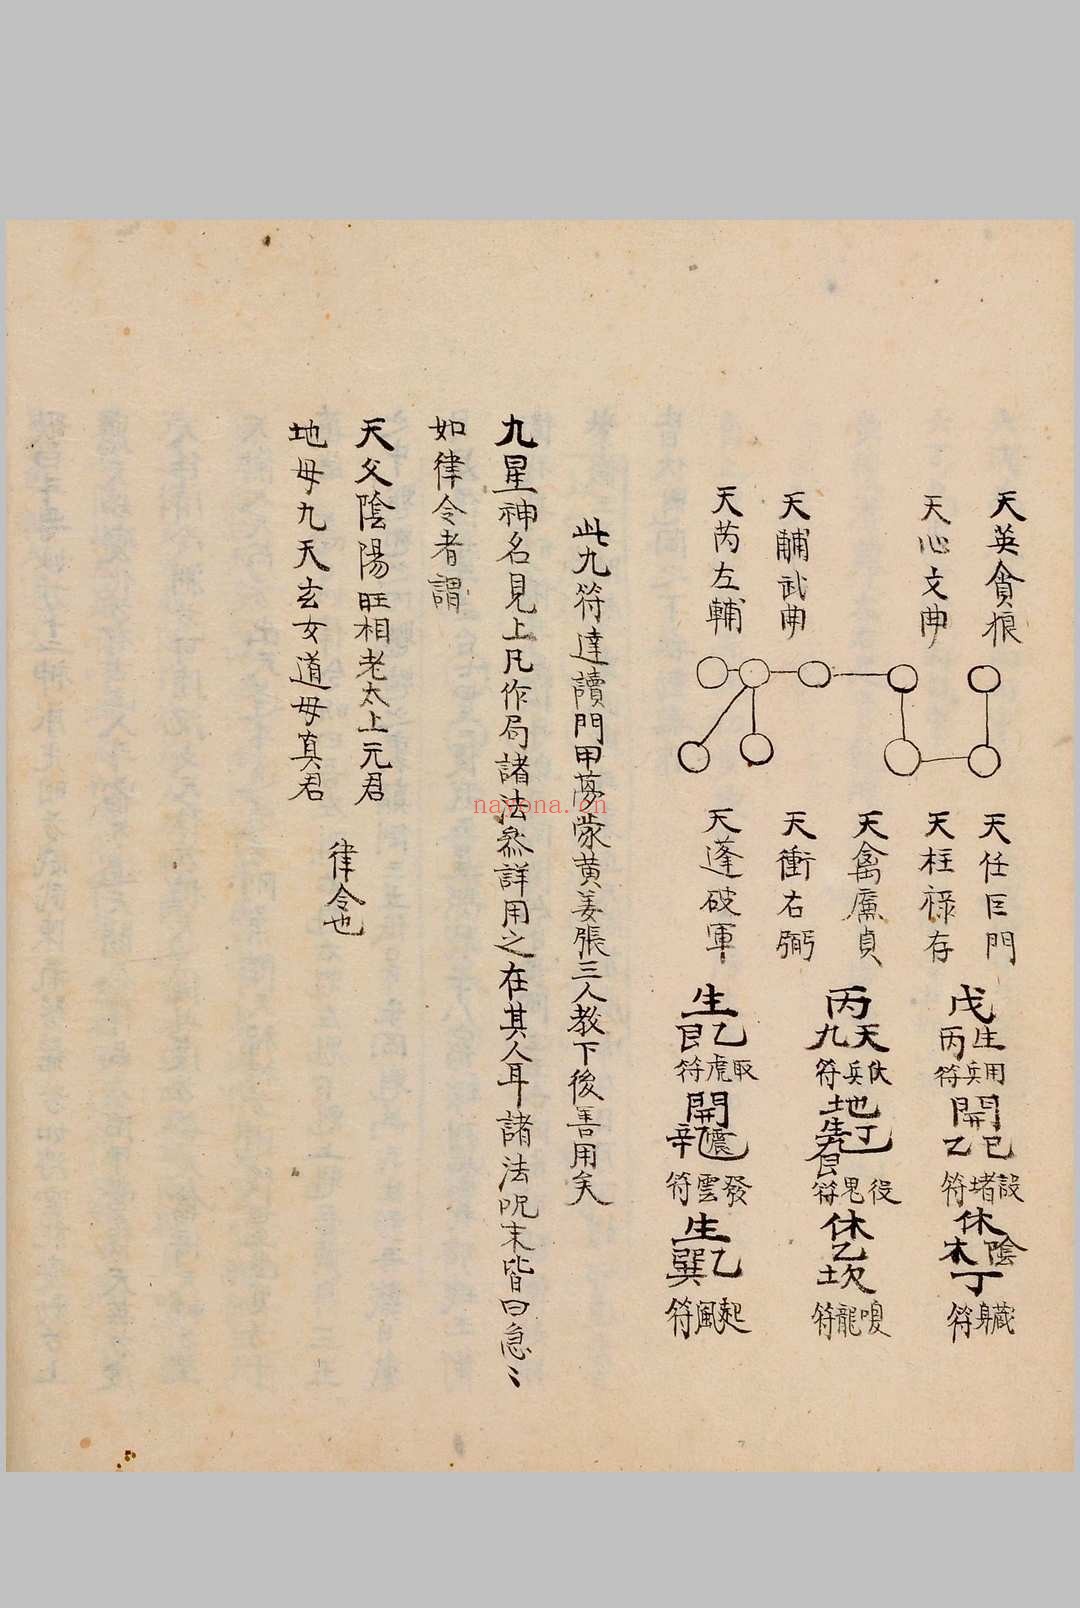 天英貪狼
天心文曲
天輔武曲
天芮左輔
天任巨門
天柱祿存
天禽廉貞
天衝右弼
天蓬破軍
戊
生丙
用兵符
開
己乙
設堵符
休
陰木
丁
藏身符
丙
天九
伏兵符
地
丁
役鬼符
休
乙
坎
嗄龍符
生
乙艮
取虎符
開
震辛
發雲符
生
乙巽
起風符
此九符達讀門甲夢蒙黄姜張三人教下後善用矣
九星神名見上凡作局諸法叅詳用之在其人耳諸法呪末皆曰急〻
如律令者謂
天父陰陽旺相老太上元君
地母九天玄女道母真君
律令也
nayona.cn